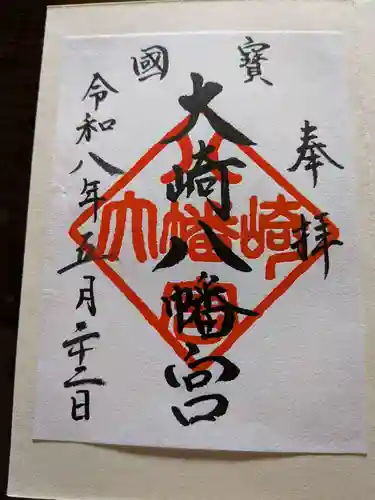 奉拝
寳國
大崎八幡宮
令和八年五月二十二日
大崎八幡宮